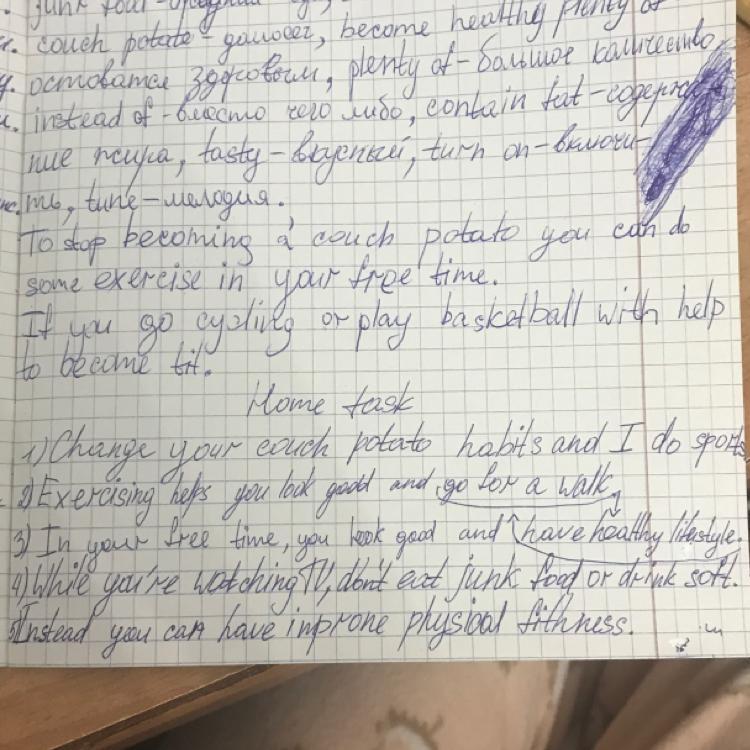 junk food-
couch potato-домосег, become healthy plenty of
оставатся здоровым, plenty of-большое количество,
instead of-вместо чего либо, contain fat-содержа-
ние жира, tasty-вкусный, turn on-включи-
ть, tune-мелодия.
To stop becoming a couch potato you can do
some exercise in your free time.
If you go cycling or play basketball with help
to become fit.
Home task
1) Change your couch potato habits and I do sports
2) Exercising helps you look good and go for a walk
3) In your free time, you look good and have healthy lifestyle.
4) While you're watching TV, don't eat junk food or drink soft.
5) Instead you can have improne physical fithness.